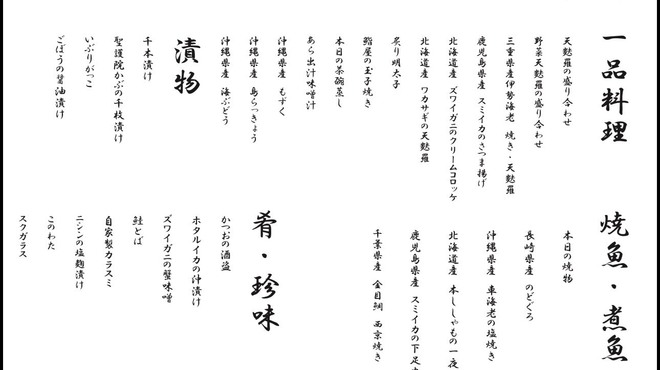 一品料理
天麩羅の盛り合わせ
野菜天麩羅の盛り合わせ
三重県産伊勢海老 焼き・天麩羅
鹿児島県産 スミイカのさつま揚げ
北海道産 ズワイガニのクリームコロッケ
北海道産 ワカサギの天麩羅
炙り明太子
鮨屋の玉子焼き
本日の茶碗蒸し
あら出汁味噌汁
沖縄県産 もずく
沖縄県産 島らっきょう
沖縄県産 海ぶどう
漬物
千本漬け
聖護院かぶの千枚漬け
いぶりがっこ
ごぼうの醤油漬け
焼魚・煮魚
本日の焼物
長崎県産 のどぐろ
沖縄県産 車海老の塩焼き
北海道産 本ししゃもの一夜
鹿児島県産 スミイカの下足
千葉県産 金目鯛 西京焼き
肴・珍味
かつおの酒盗
ホタルイカの沖漬け
ズワイガニの蟹味噌
鮭とば
自家製カラスミ
ニシンの塩麹漬け
このわた
スクガラス